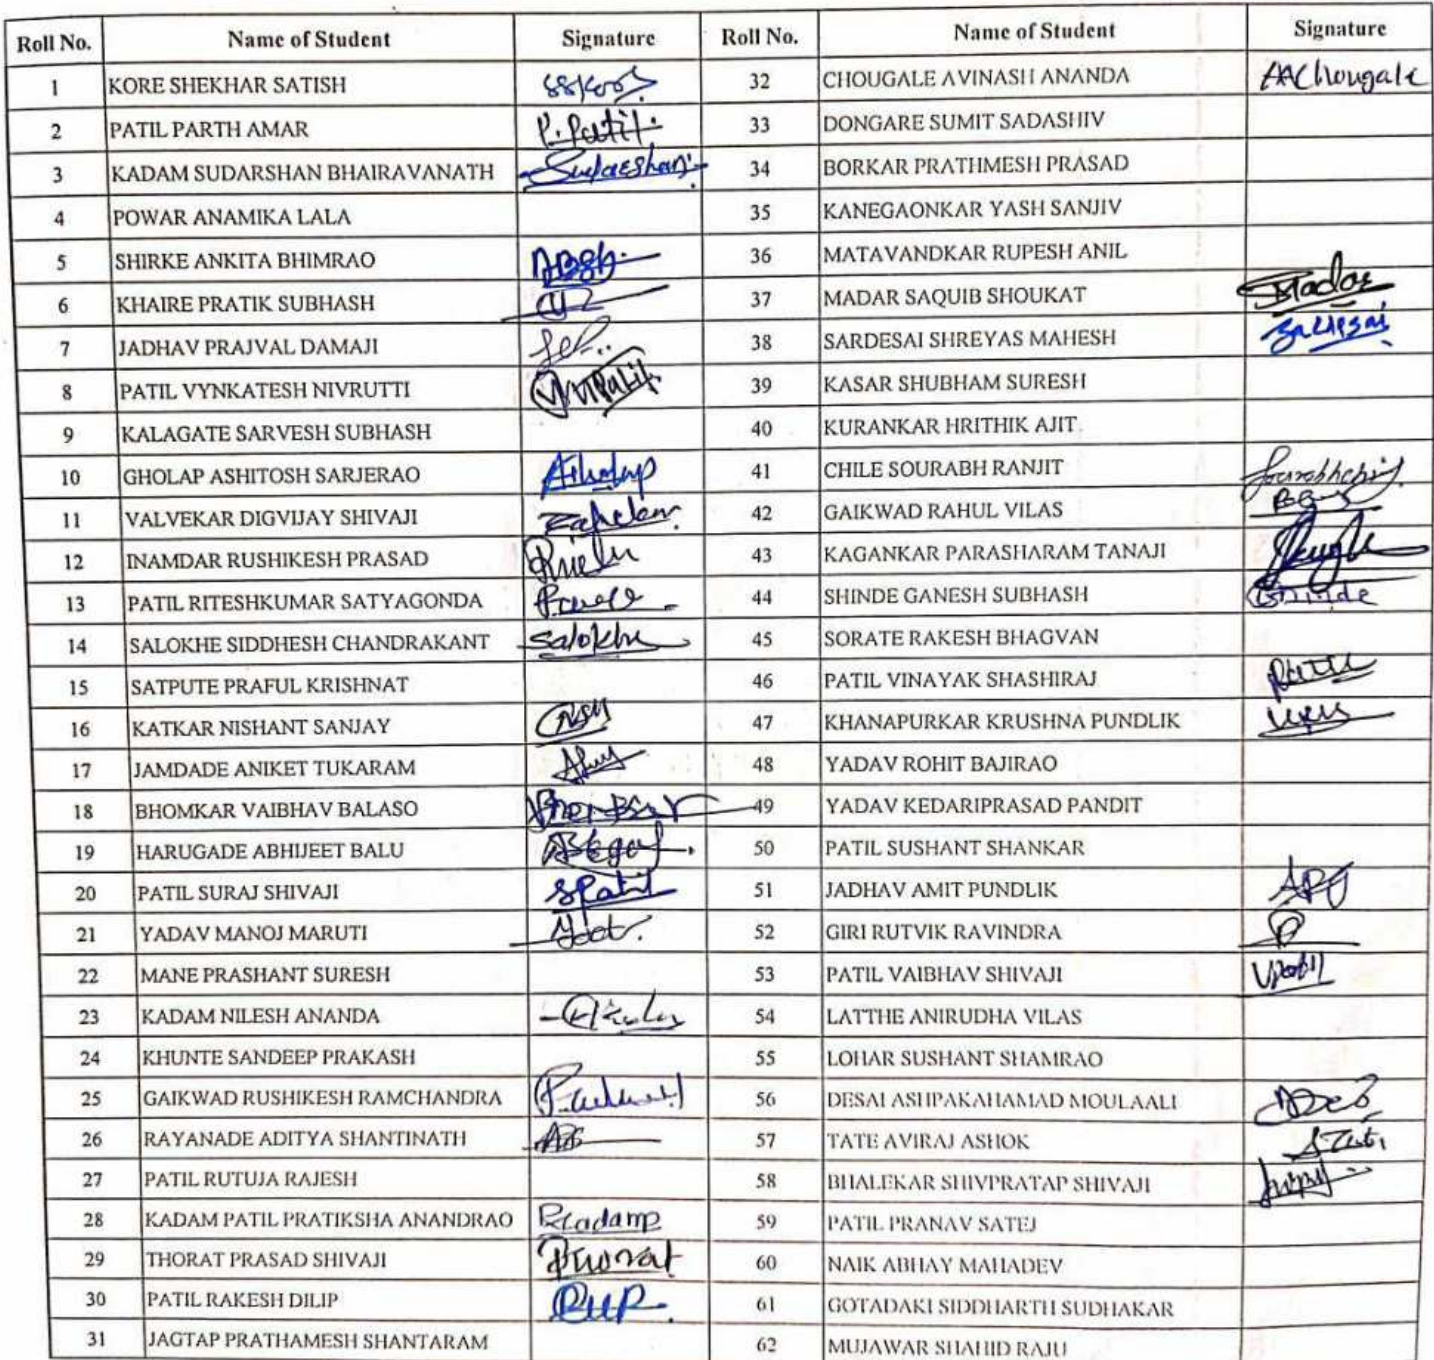 Roll No. Name of Student Signature Roll No. Name of Student Signature
1 KORE SHEKHAR SATISH SSKore 32 CHOUGALE AVINASH ANANDA AAChougale
2 PATIL PARTH AMAR P. Patil. 33 DONGARE SUMIT SADASHIV
3 KADAM SUDARSHAN BHAIRAVANATH Sudarshan 34 BORKAR PRATHMESH PRASAD
4 POWAR ANAMIKA LALA 35 KANEGAONKAR YASH SANJIV
5 SHIRKE ANKITA BHIMRAO 36 MATAVANDKAR RUPESH ANIL
6 KHAIRE PRATIK SUBHASH 37 MADAR SAQUIB SHOUKAT
7 JADHAV PRAJVAL DAMAJI 38 SARDESAI SHREYAS MAHESH
8 PATIL VYNKATESH NIVRUTTI 39 KASAR SHUBHAM SURESH
9 KALAGATE SARVESH SUBHASH 40 KURANKAR HRITHIK AJIT
10 GHOLAP ASHITOSH SARJERAO 41 CHILE SOURABH RANJIT
11 VALVEKAR DIGVIJAY SHIVAJI 42 GAIKWAD RAHUL VILAS
12 INAMDAR RUSHIKESH PRASAD 43 KAGANKAR PARASHARAM TANAJI
13 PATIL RITESHKUMAR SATYAGONDA 44 SHINDE GANESH SUBHASH GShinde
14 SALOKHE SIDDHESH CHANDRAKANT Salokhe 45 SORATE RAKESH BHAGVAN
15 SATPUTE PRAFUL KRISHNAT 46 PATIL VINAYAK SHASHIRAJ
16 KATKAR NISHANT SANJAY 47 KHANAPURKAR KRUSHNA PUNDLIK
17 JAMDADE ANIKET TUKARAM 48 YADAV ROHIT BAJIRAO
18 BHOMKAR VAIBHAV BALASO 49 YADAV KEDARIPRASAD PANDIT
19 HARUGADE ABHIJEET BALU 50 PATIL SUSHANT SHANKAR
20 PATIL SURAJ SHIVAJI SPatil 51 JADHAV AMIT PUNDLIK APJ
21 YADAV MANOJ MARUTI 52 GIRI RUTVIK RAVINDRA
22 MANE PRASHANT SURESH 53 PATIL VAIBHAV SHIVAJI VPatil
23 KADAM NILESH ANANDA 54 LATTHE ANIRUDHA VILAS
24 KHUNTE SANDEEP PRAKASH 55 LOHAR SUSHANT SHAMRAO
25 GAIKWAD RUSHIKESH RAMCHANDRA 56 DESAI ASHPAKAHAMAD MOULAALI
26 RAYANADE ADITYA SHANTINATH 57 TATE AVIRAJ ASHOK
27 PATIL RUTUJA RAJESH 58 BHALEKAR SHIVPRATAP SHIVAJI
28 KADAM PATIL PRATIKSHA ANANDRAO 59 PATIL PRANAV SATEJ
29 THORAT PRASAD SHIVAJI 60 NAIK ABHAY MAHADEV
30 PATIL RAKESH DILIP 61 GOTADAKI SIDDHARTH SUDHAKAR
31 JAGTAP PRATHAMESH SHANTARAM 62 MUJAWAR SHAHID RAJU